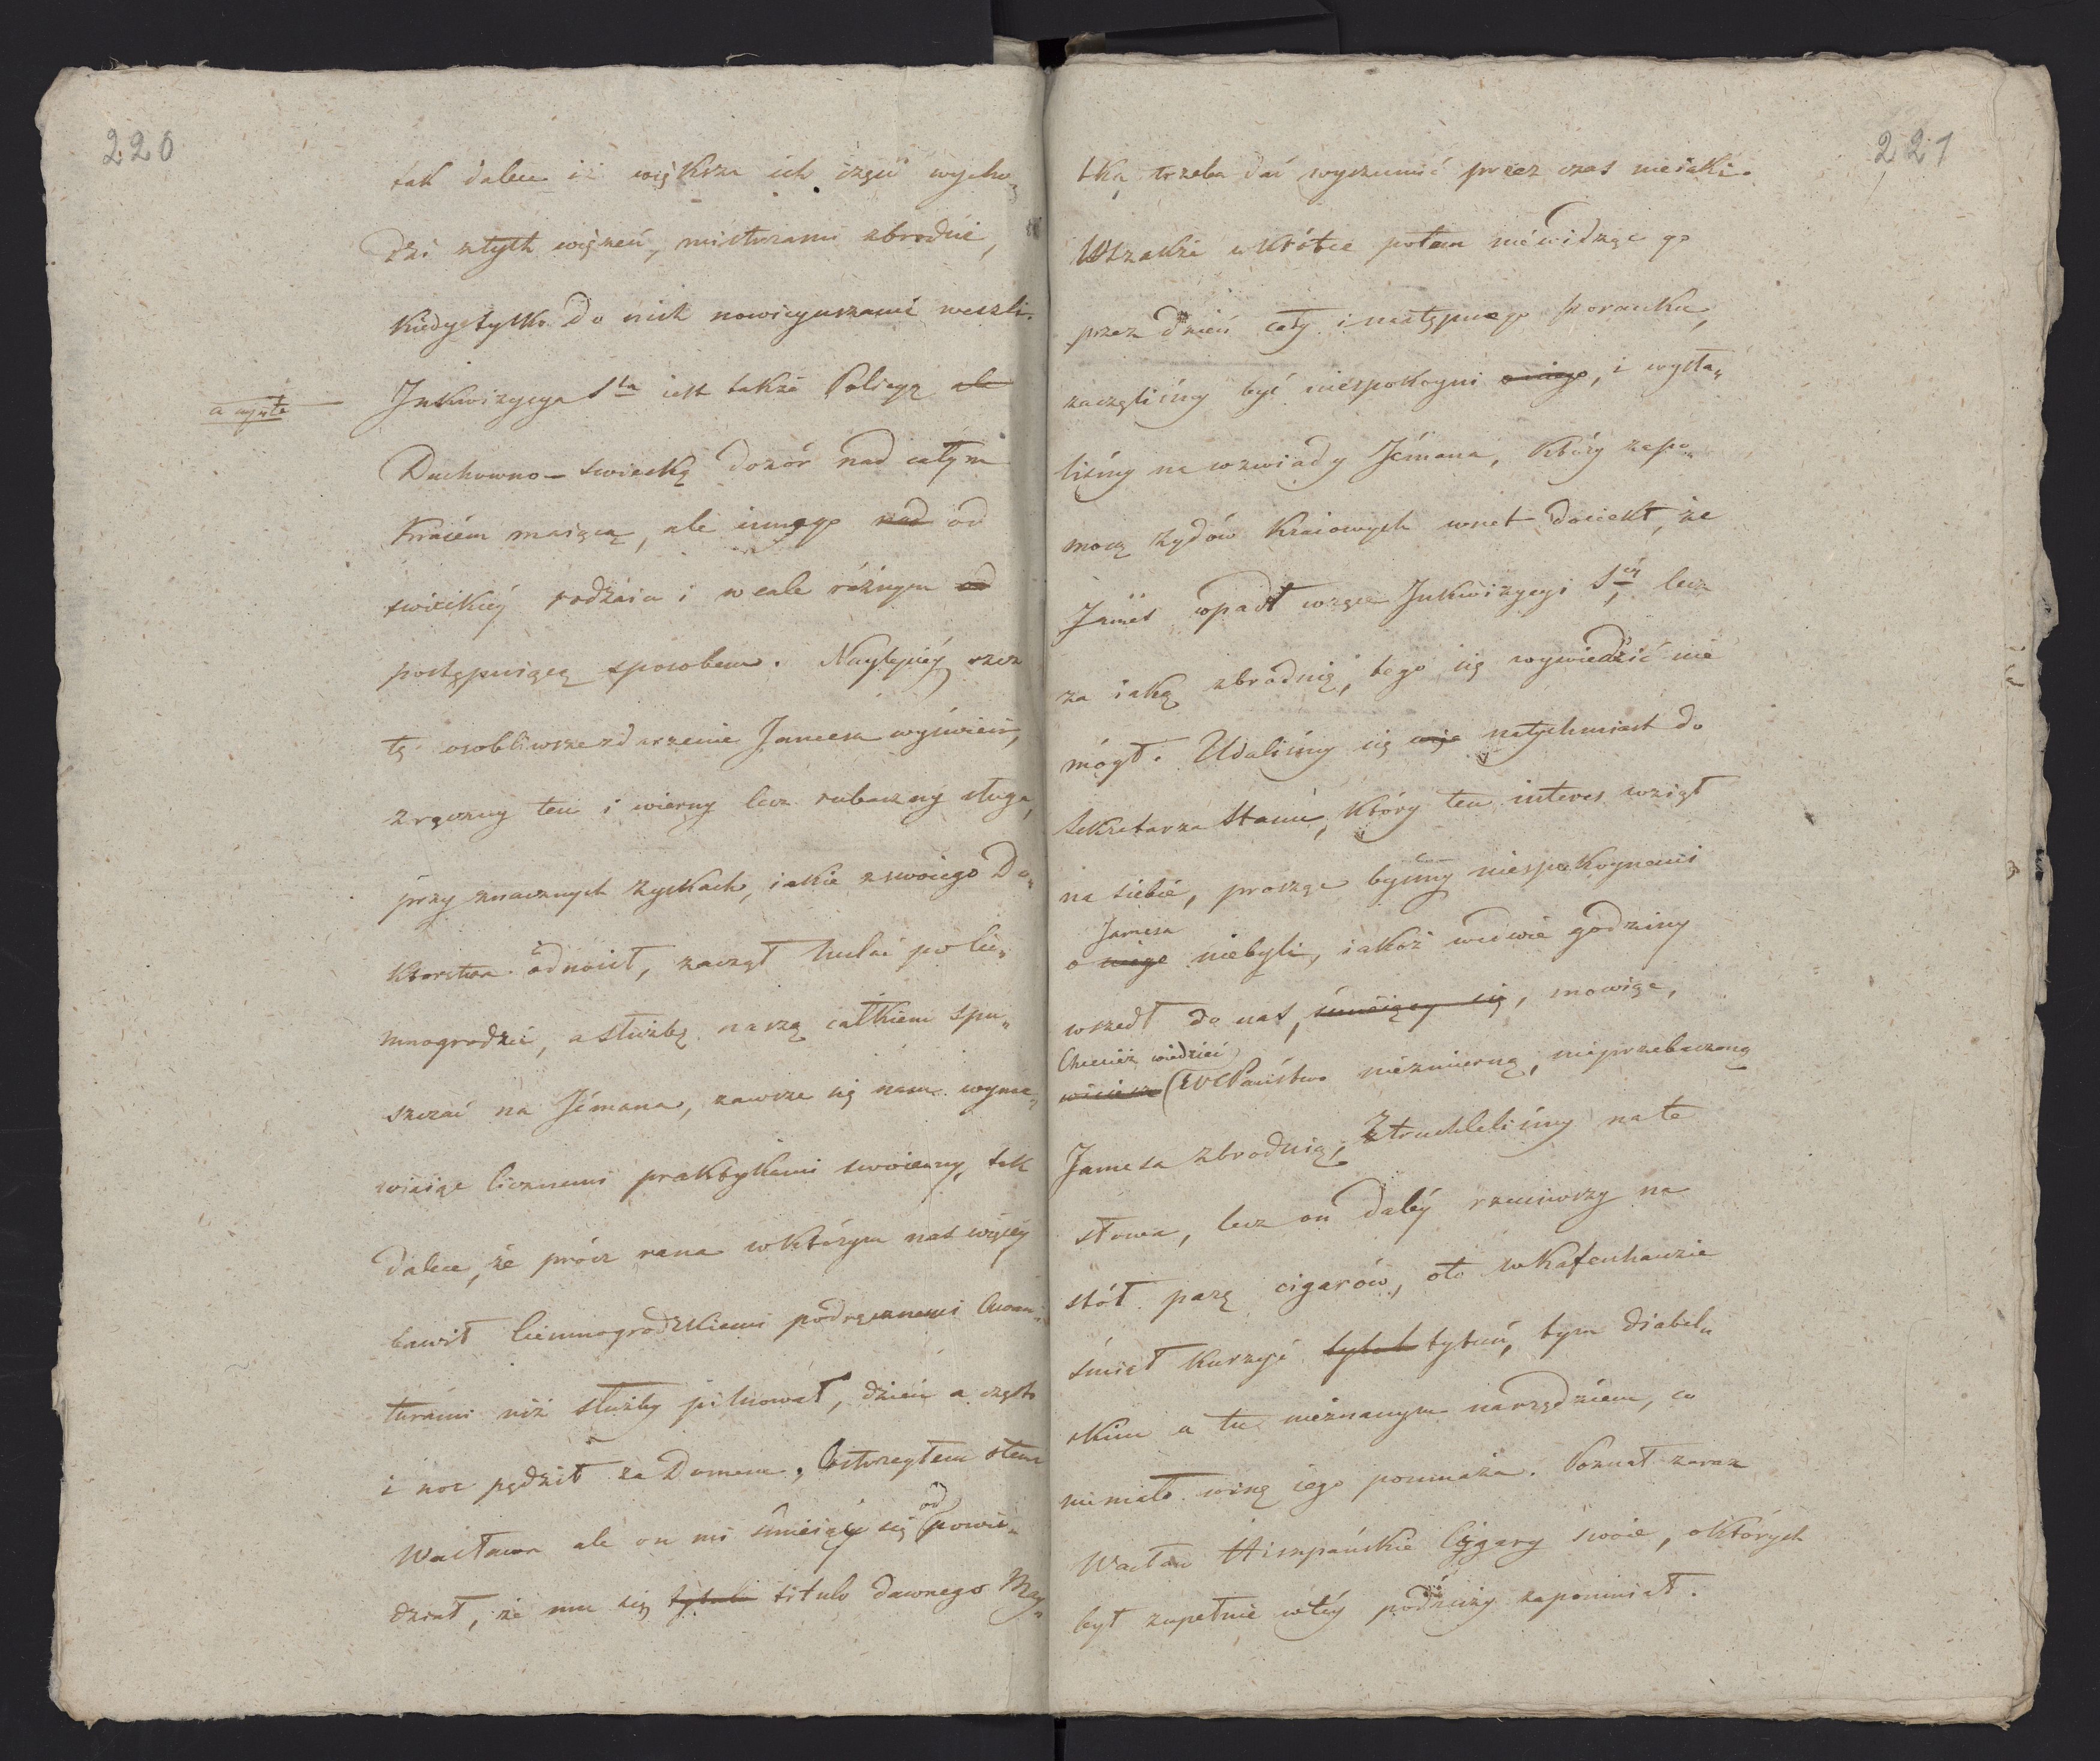 220
tak dalece iż większa ich część wycho„
dzi z tych więzeń, mistrzami zbrodni,
kiedy tylko do nich nowicyuszami weszli.
a cyula
Inkwizycya Sta iest także Policyą ale
Duchowno-swiecką dozór nad całym
Kraiém maiącą, ale innego nad od
świeckiéy rodzáiu i wcale różnym od
postępuiącą sposobem. Naylepiéy rzecz
tę osobliwsze zdarzenie Jamesa wyświeci,
zręczny ten i wierny lecz rubaszny sługa,
przy znacznych zyskach, iakie z swoiego Do„
ktorstwa odnosił, zaczął hulać po Cie„
mnogrodzie, a służbę naszą całkiem spu„
szczać na Jémana, zawsze się nam wyma„
wiaiąc licznemi praktykami swoiemy, tak
dalece, że prócz rana w którym nas więcéy
bawił Ciemnogrodzkiemi podręcznemi Awan„
turámi niż służby pilnował, dzień a często
i noc pędził za Domem. Ostrzegłem o tem
Wacława ale on mi śmieiąc się odpowie„
dział, że mu się tytulu titulo dawnego May„
221
tka trzeba dać wyszumić przez czas nieiaki.
Wszakże w krótce potem niéwidząc go
przez dzień cały i nastę­pnego poranku,
zaczęliśmy być niespokoyni o niego, i wysła„
liśmy na wzwiady Jémana, który za po„
mocą żydów kraiowych wnet dociekł, że
James wpadł w ręce Inkwizycyi Stéy lecz
za iaką zbrodnią, tego się wywiedzieć nie
mógł. Udaliśmy się więc natychmiast do
Sekretarza Stanu, który ten interes wziął
na siebie, prosząc byśmy niespokoynemi
Jamesa
o niego niebyli, iakoż we dwie godziny
wszedł do nas, śmieiący się, mowiąc,
Chcecież wiedzieć
wiecie (WPaństwo niezmierną, nieprzebaczoną
Jamesa zbrodnią, Ztruchleliśmy na te
słowa, lecz on daléy rzuciwszy na
stół parę cigarów, oto w kafenhauzie
śmiał kurzyć tytoń tytuń, tym diabel„
skim a tu nieznanym narzędziem, co
niemało winę iego pomnáża. Poznał zaraz
Wacław Hiszpańskie Cygary swoie, o których
był zupełnie w téy podróży zapomniał.